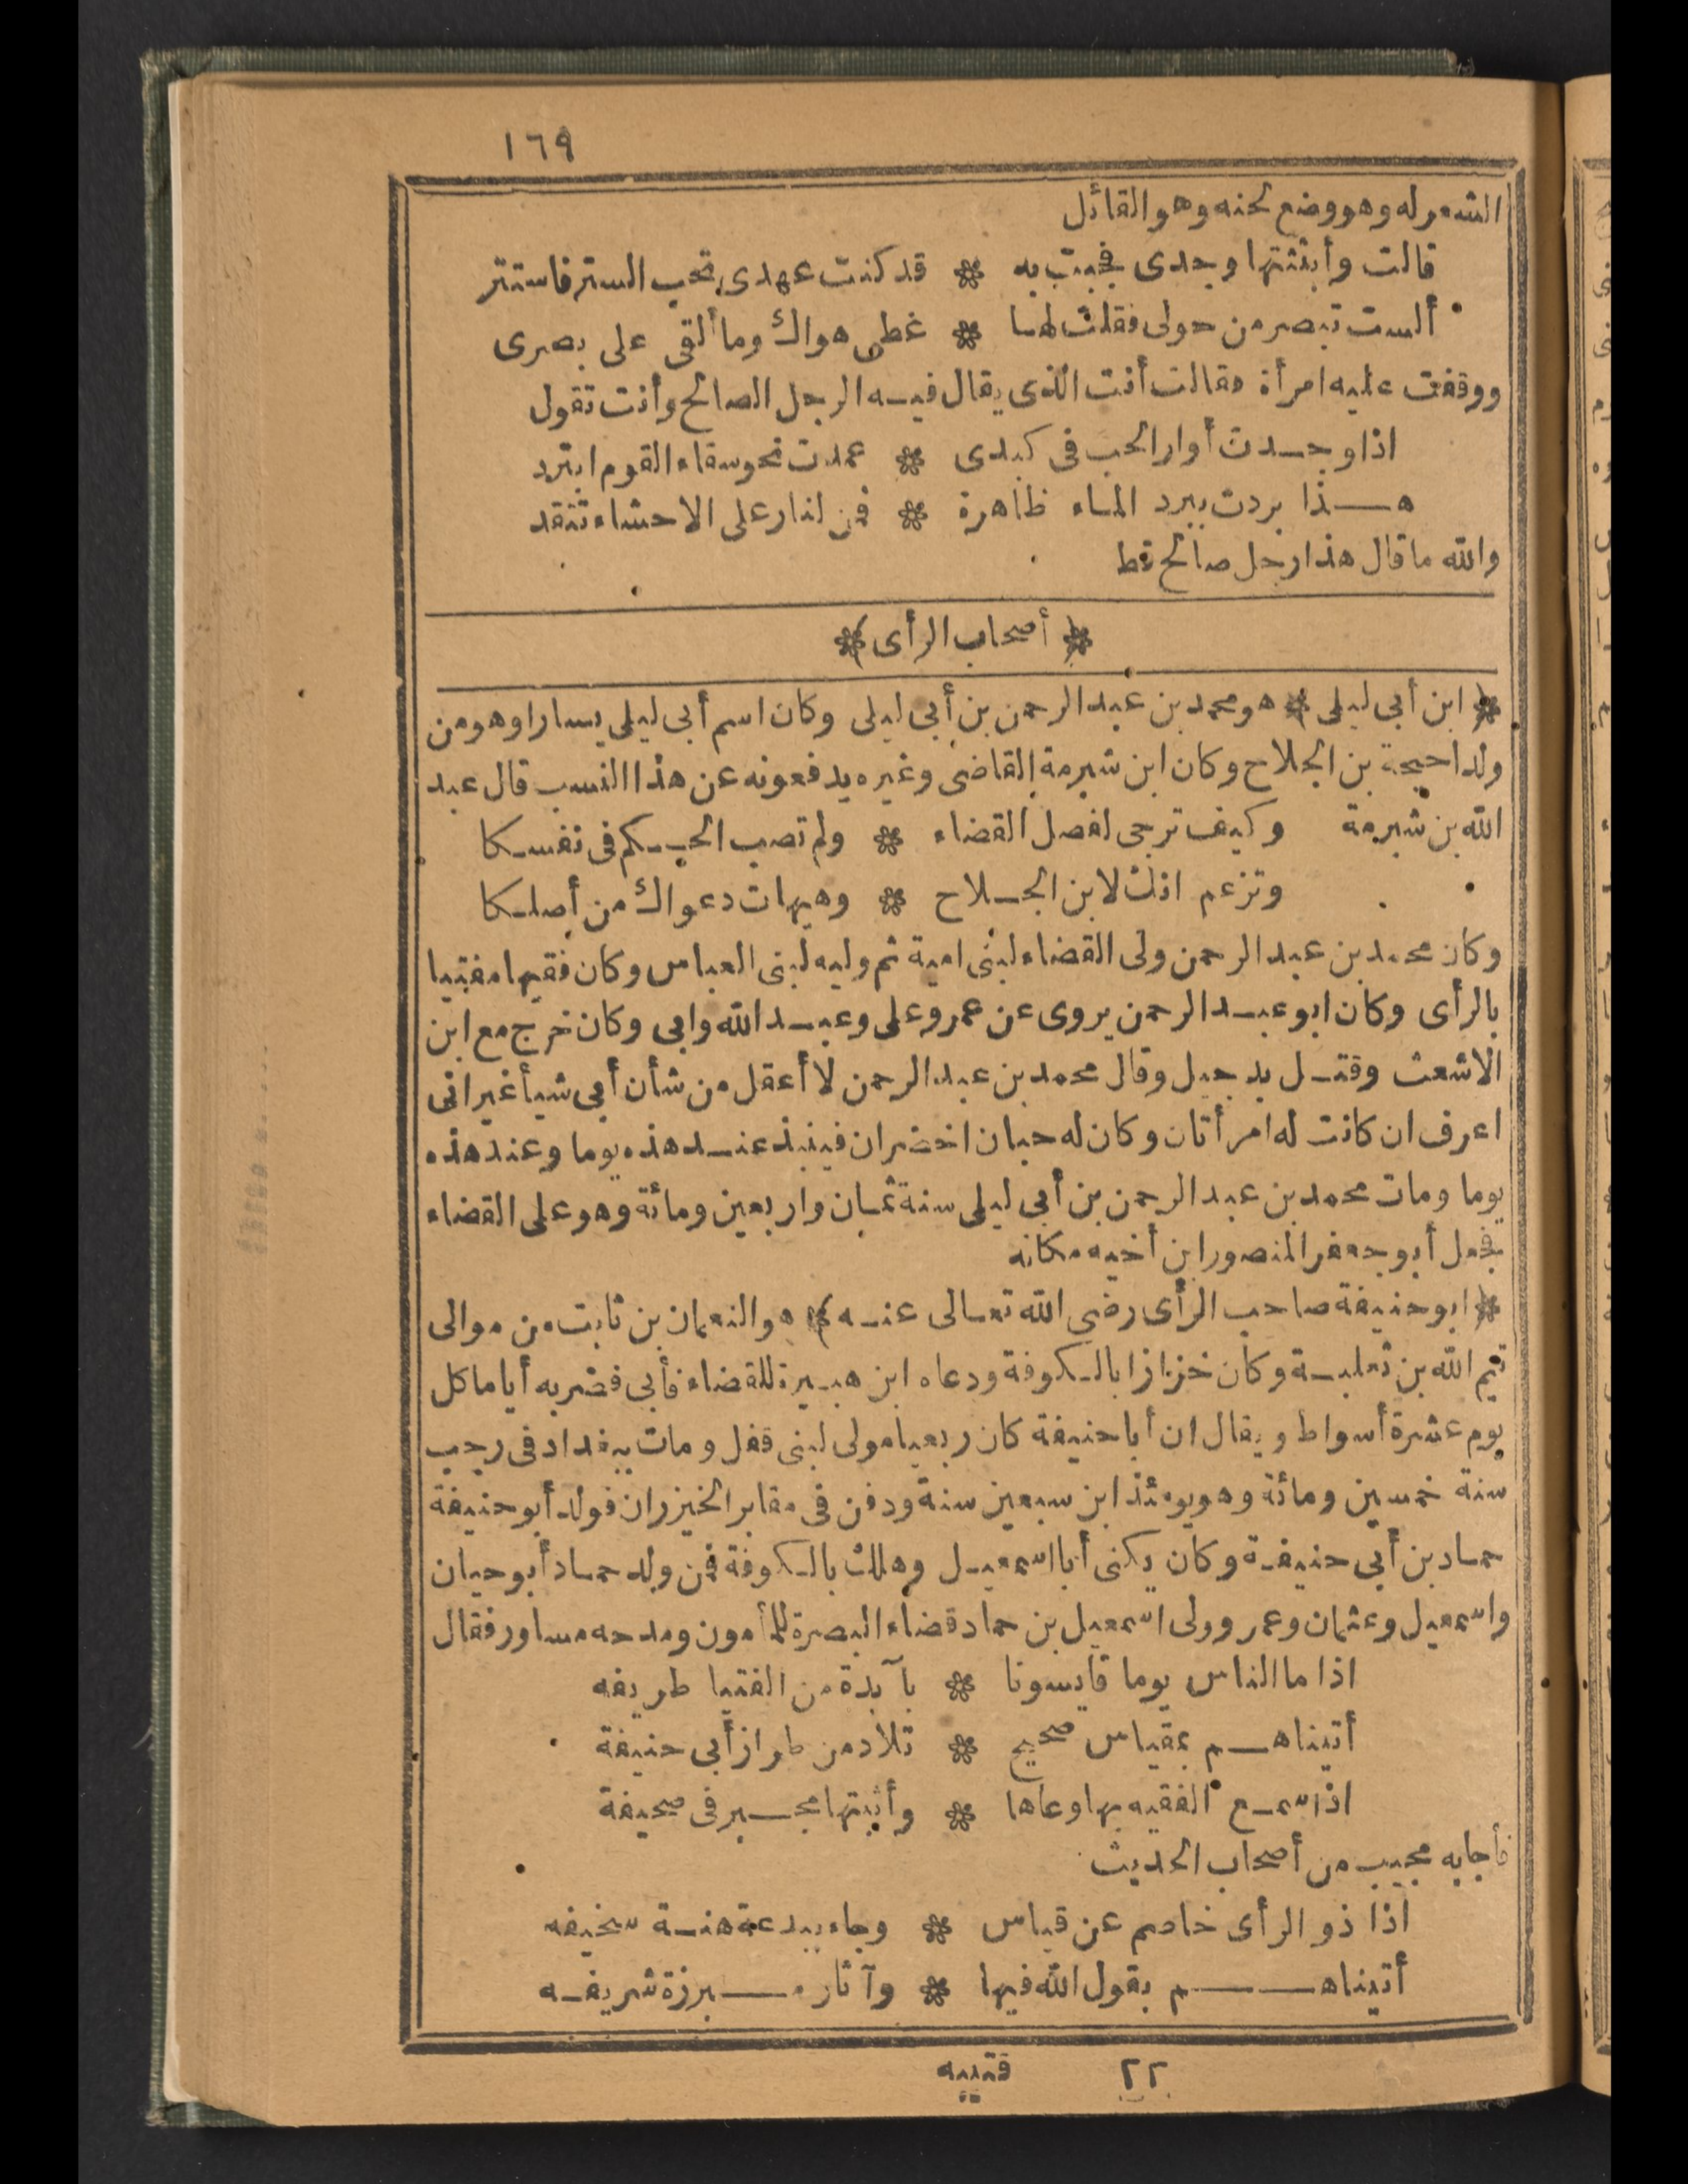 ١٦٩
الشعر له وهو وضع لحنه وهو القائل
قالت وأبثثتها وجدى فبحت به * قد كنت عهدى تحب الستر فاستتر
ألست تبصر من حولى فقلت لها * غطى هواك وما ألقى على بصرى
ووقفت عليه امرأة فقالت أنت الذى يقال فيه الرجل الصالح وأنت تقول
اذا وجدت أوار الحب فى كبدى * عمدت نحو سقاء القوم ابترد
هذا بردت ببرد الماء ظاهرة * فمن لنار على الاحشاء تتقد
والله ما قال هذا رجل صالح قط
* أصحاب الرأى *
* ابن أبى ليلى * هو محمد بن عبد الرحمن بن أبى ليلى وكان اسم أبى ليلى يسارا وهو من
ولد احيحة بن الجلاح وكان ابن شبرمة القاضى وغيره يدفعونه عن هذا النسب قال عبد
الله بن شبرمة وكيف ترجى لفصل القضاء * ولم تصب الحكم فى نفسكا
وتزعم انك لابن الجلاح * وهيهات دعواك من أصلكا
وكان محمد بن عبد الرحمن ولى القضاء لبنى امية ثم وليه لبنى العباس وكان فقيها مفتيا
بالرأى وكان ابو عبد الرحمن يروى عن عمر وعلى وعبد الله وابى وكان خرج مع ابن
الاشعث وقتل بدجيل وقال محمد بن عبد الرحمن لا أعقل من شأن أبى شيأ غير انى
اعرف ان كانت له امرأتان وكان له حبان اخضران فينبذ عند هذه يوما وعند هذه
يوما ومات محمد بن عبد الرحمن بن أبى ليلى سنة ثمان واربعين ومائة وهو على القضاء
فجعل أبو جعفر المنصور ابن أخيه مكانه
* ابو حنيفة صاحب الرأى رضى الله تعالى عنه * هو النعمان بن ثابت من موالى
تيم الله بن ثعلبة وكان خزازا بالكوفة ودعاه ابن هبيرة للقضاء فأبى فضربه أياما كل
يوم عشرة أسواط ويقال ان أبا حنيفة كان ربعيا مولى لبنى قفل ومات ببغداد فى رجب
سنة خمسين ومائة وهو يومئذ ابن سبعين سنة ودفن فى مقابر الخيزران فولد أبو حنيفة
حماد بن أبى حنيفة وكان يكنى أبا اسمعيل وهلك بالكوفة فمن ولد حماد أبو حيان
واسمعيل وعثمان وعمر وولى اسمعيل بن حماد قضاء البصرة للمأمون ومدحه مساور فقال
اذا ما الناس يوما قايسونا * بآبدة من الفتيا طريفه
أتيناهم بمقياس صحيح * تلاد من طراز أبى حنيفة
اذا سمع الفقيه بها وعاها * وأثبتها بحبر فى صحيفة
فأجابه مجيب من أصحاب الحديث
اذا ذو الرأى خاصم عن قياس * وجاء ببدعة هنة سخيفه
أتيناهم بقول الله فيها * وآثار مبرزة شريفه
٢٢ قتيبه